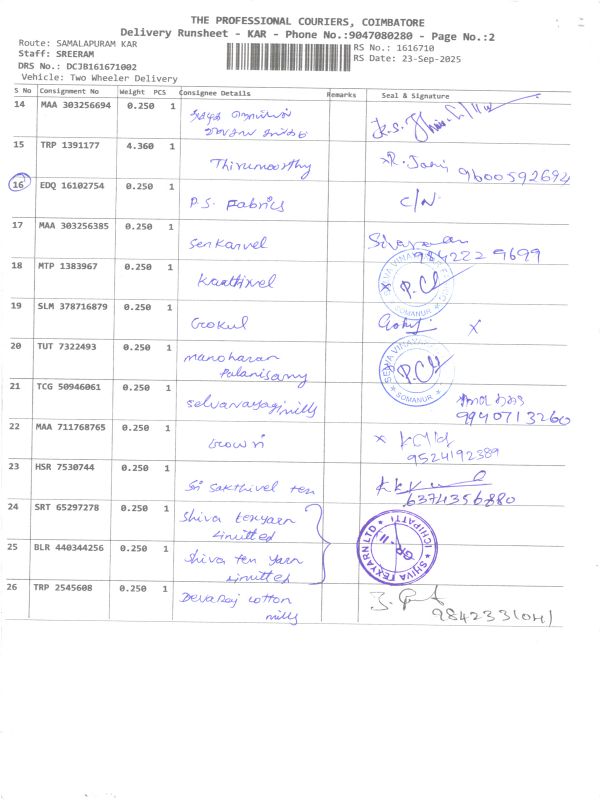 THE PROFESSIONAL COURIERS, COIMBATORE
Delivery Runsheet - KAR - Phone No.:9047080280 - Page No.:2
Route: SAMALAPURAM KAR
Staff: SREERAM
DRS No.: DCJB161671002
Vehicle: Two Wheeler Delivery
RS No.: 1616710
RS Date: 23-Sep-2025
S No Consignment No Weight PCS Consignee Details Remarks Seal & Signature
14 MAA 303256694 0.250 1
15 TRP 1391177 4.360 1 Thirumoorthy 9600592694
16 EDQ 16102754 0.250 1 P.S. Fabrics C/N
17 MAA 303256385 0.250 1 Senkarvel 98422 29699
18 MTP 1383967 0.250 1 Kaathivel SOMANUR
19 SLM 378716879 0.250 1 Gokul Gokul X
20 TUT 7322493 0.250 1 Manoharan
Palanisamy SOMANUR
21 TCG 50946061 0.250 1 Selvanayagi mills 9940713260
22 MAA 711768765 0.250 1 Gowri X 9524192389
23 HSR 7530744 0.250 1 Sri Sakthivel tex 6374356880
24 SRT 65297278 0.250 1 Shiva texyarn
Limitted
25 BLR 440344256 0.250 1 Shiva tex yarn
Limitted
SHIVA TEXYARN LTD ICHIPATTI
26 TRP 2545608 0.250 1 Devaraj cotton
mills